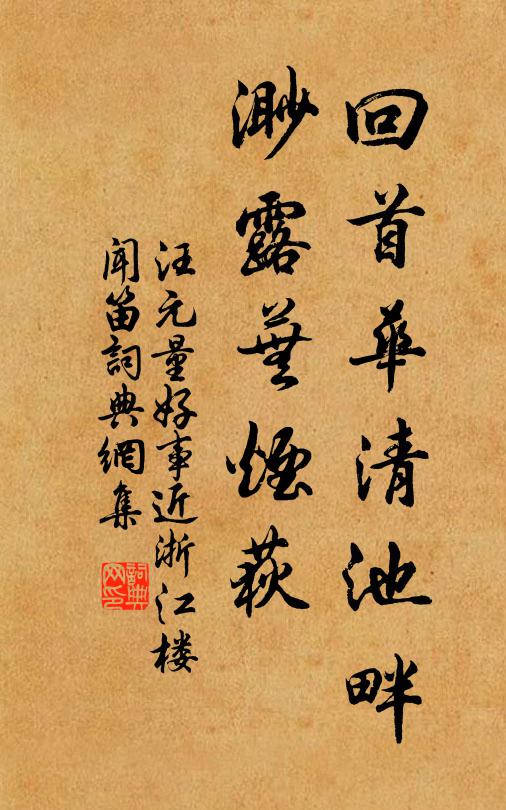 回首華清池畔
渺露蕪煙荻
汪元量好事近浙江楼
聞笛詞典網集
詞典网印